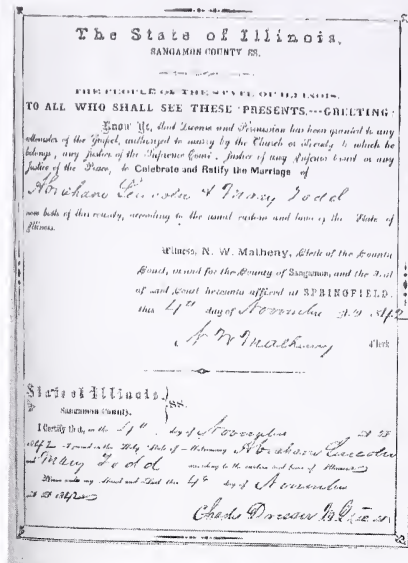 The State of Illinois,
SANGAMON COUNTY SS.
THE PEOPLE OF THE STATE OF ILLINOIS,
TO ALL WHO SHALL SEE THESE PRESENTS,---GREETING
Know Ye, that License and Permission has been granted to any
Minister of the Gospel, authorized to marry by the Church or Society to which he
belongs, any Justice of the Supreme Court, Justice of any Inferior Court or any
Justice of the Peace, to Celebrate and Ratify the Marriage of
Abraham Lincoln & Mary Todd
now both of this county, according to the usual custom and laws of the State of
Illinois.
Witness, N. W. Matheny, Clerk of the County
Court, in and for the County of Sangamon, and the Seal
of said Court hereunto affixed at SPRINGFIELD,
this 4th day of November A.D. 1842
N W Matheny Clerk
State of Illinois, } SS.
Sangamon County.
I Certify that, on the 4th day of November A D
1842 I joined in the Holy State of Matrimony Abraham Lincoln
and Mary Todd according to the custom and laws of Illinois
Given under my Hand and Seal this 4th day of November
A D 1842
Charles Dresser